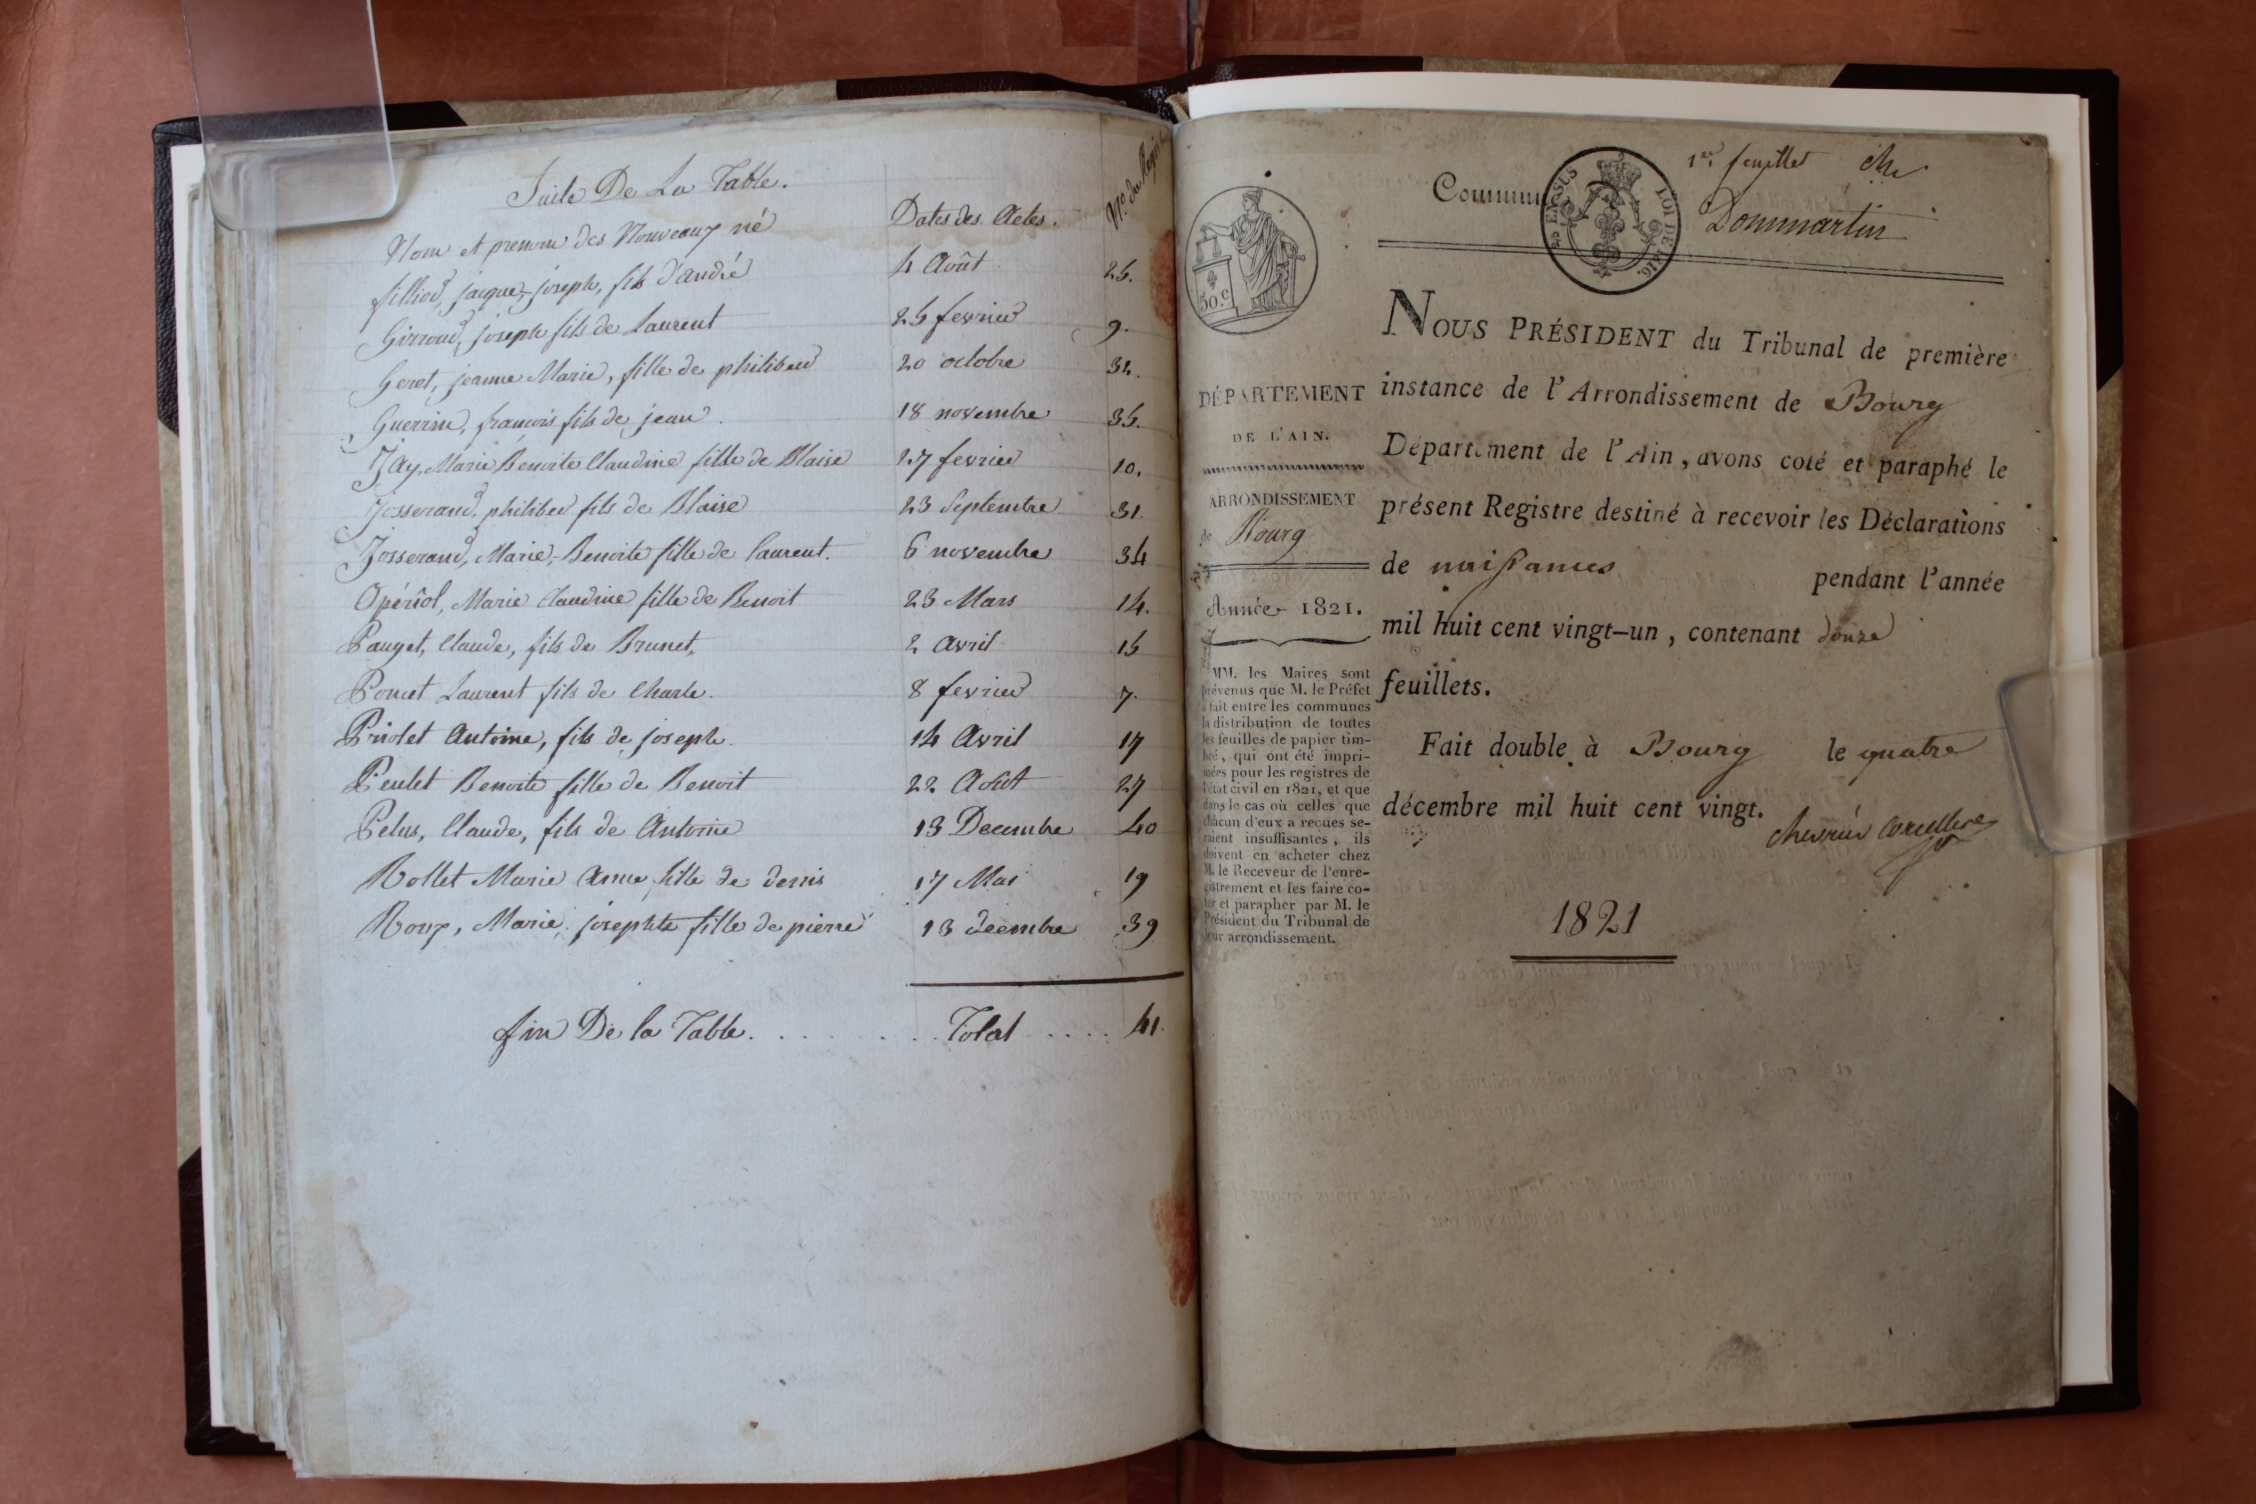 Suite De La Table.
Nom et prenom des Nouveaux né Dates des Actes. No. du Regis
fillion, jacque, joseph, fils d'andré 4 Août 25.
Girroud, joseph fils de Laurent 25 fevrier 9.
Geret, jeanne Marie, fille de philibert 20 octobre 32.
Guerrin, francois fils de jean 18 novembre 35.
Jay, Marie Benoite Claudine fille de Blaise 27 fevrier 10.
Josserand, philibert fils de Blaise 23 Septembre 31.
Josserand, Marie, Benoite fille de Laurent. 6 novembre 34
Opériol, Marie Claudine fille de Benoit 23 Mars 14.
Pauget, Claude, fils de Brunet, 2 avril 15
Poncet Laurent fils de Charle. 8 fevrier 7.
Priolet Antoine, fils de joseph. 14 Avril 17
Peulet Benoite fille de Benoit 22 Août 27
Pelus, Claude, fils de Antoine 13 Decembre 40
Rollet Marie Anne fille de denis 17 Mai 19
Roux, Marie josephte fille de pierre 13 decembre 39
fin De la Table. . . . . . . . Total . . . . 41.
1er. feuillet
Commune Dommartin
EN SUS
LOI DE 1816.
50.c
DÉPARTEMENT
DE L'AIN.
ARRONDISSEMENT
de Bourg
Année 1821.
MM. les Maires sont
prévenus que M. le Préfet
a fait entre les communes
la distribution de toutes
les feuilles de papier tim-
bré, qui ont été impri-
mées pour les registres de
l'état civil en 1821, et que
dans le cas où celles que
chacun d'eux a reçues se-
raient insuffisantes, ils
doivent en acheter chez
M. le Receveur de l'enre-
gistrement et les faire co-
ter et parapher par M. le
Président du Tribunal de
leur arrondissement.
NOUS PRÉSIDENT du Tribunal de première
instance de l'Arrondissement de Bourg
Département de l'Ain, avons coté et paraphé le
présent Registre destiné à recevoir les Déclarations
de naissances pendant l'année
mil huit cent vingt-un, contenant douze
feuillets.
Fait double à Bourg le quatre
décembre mil huit cent vingt.
1821